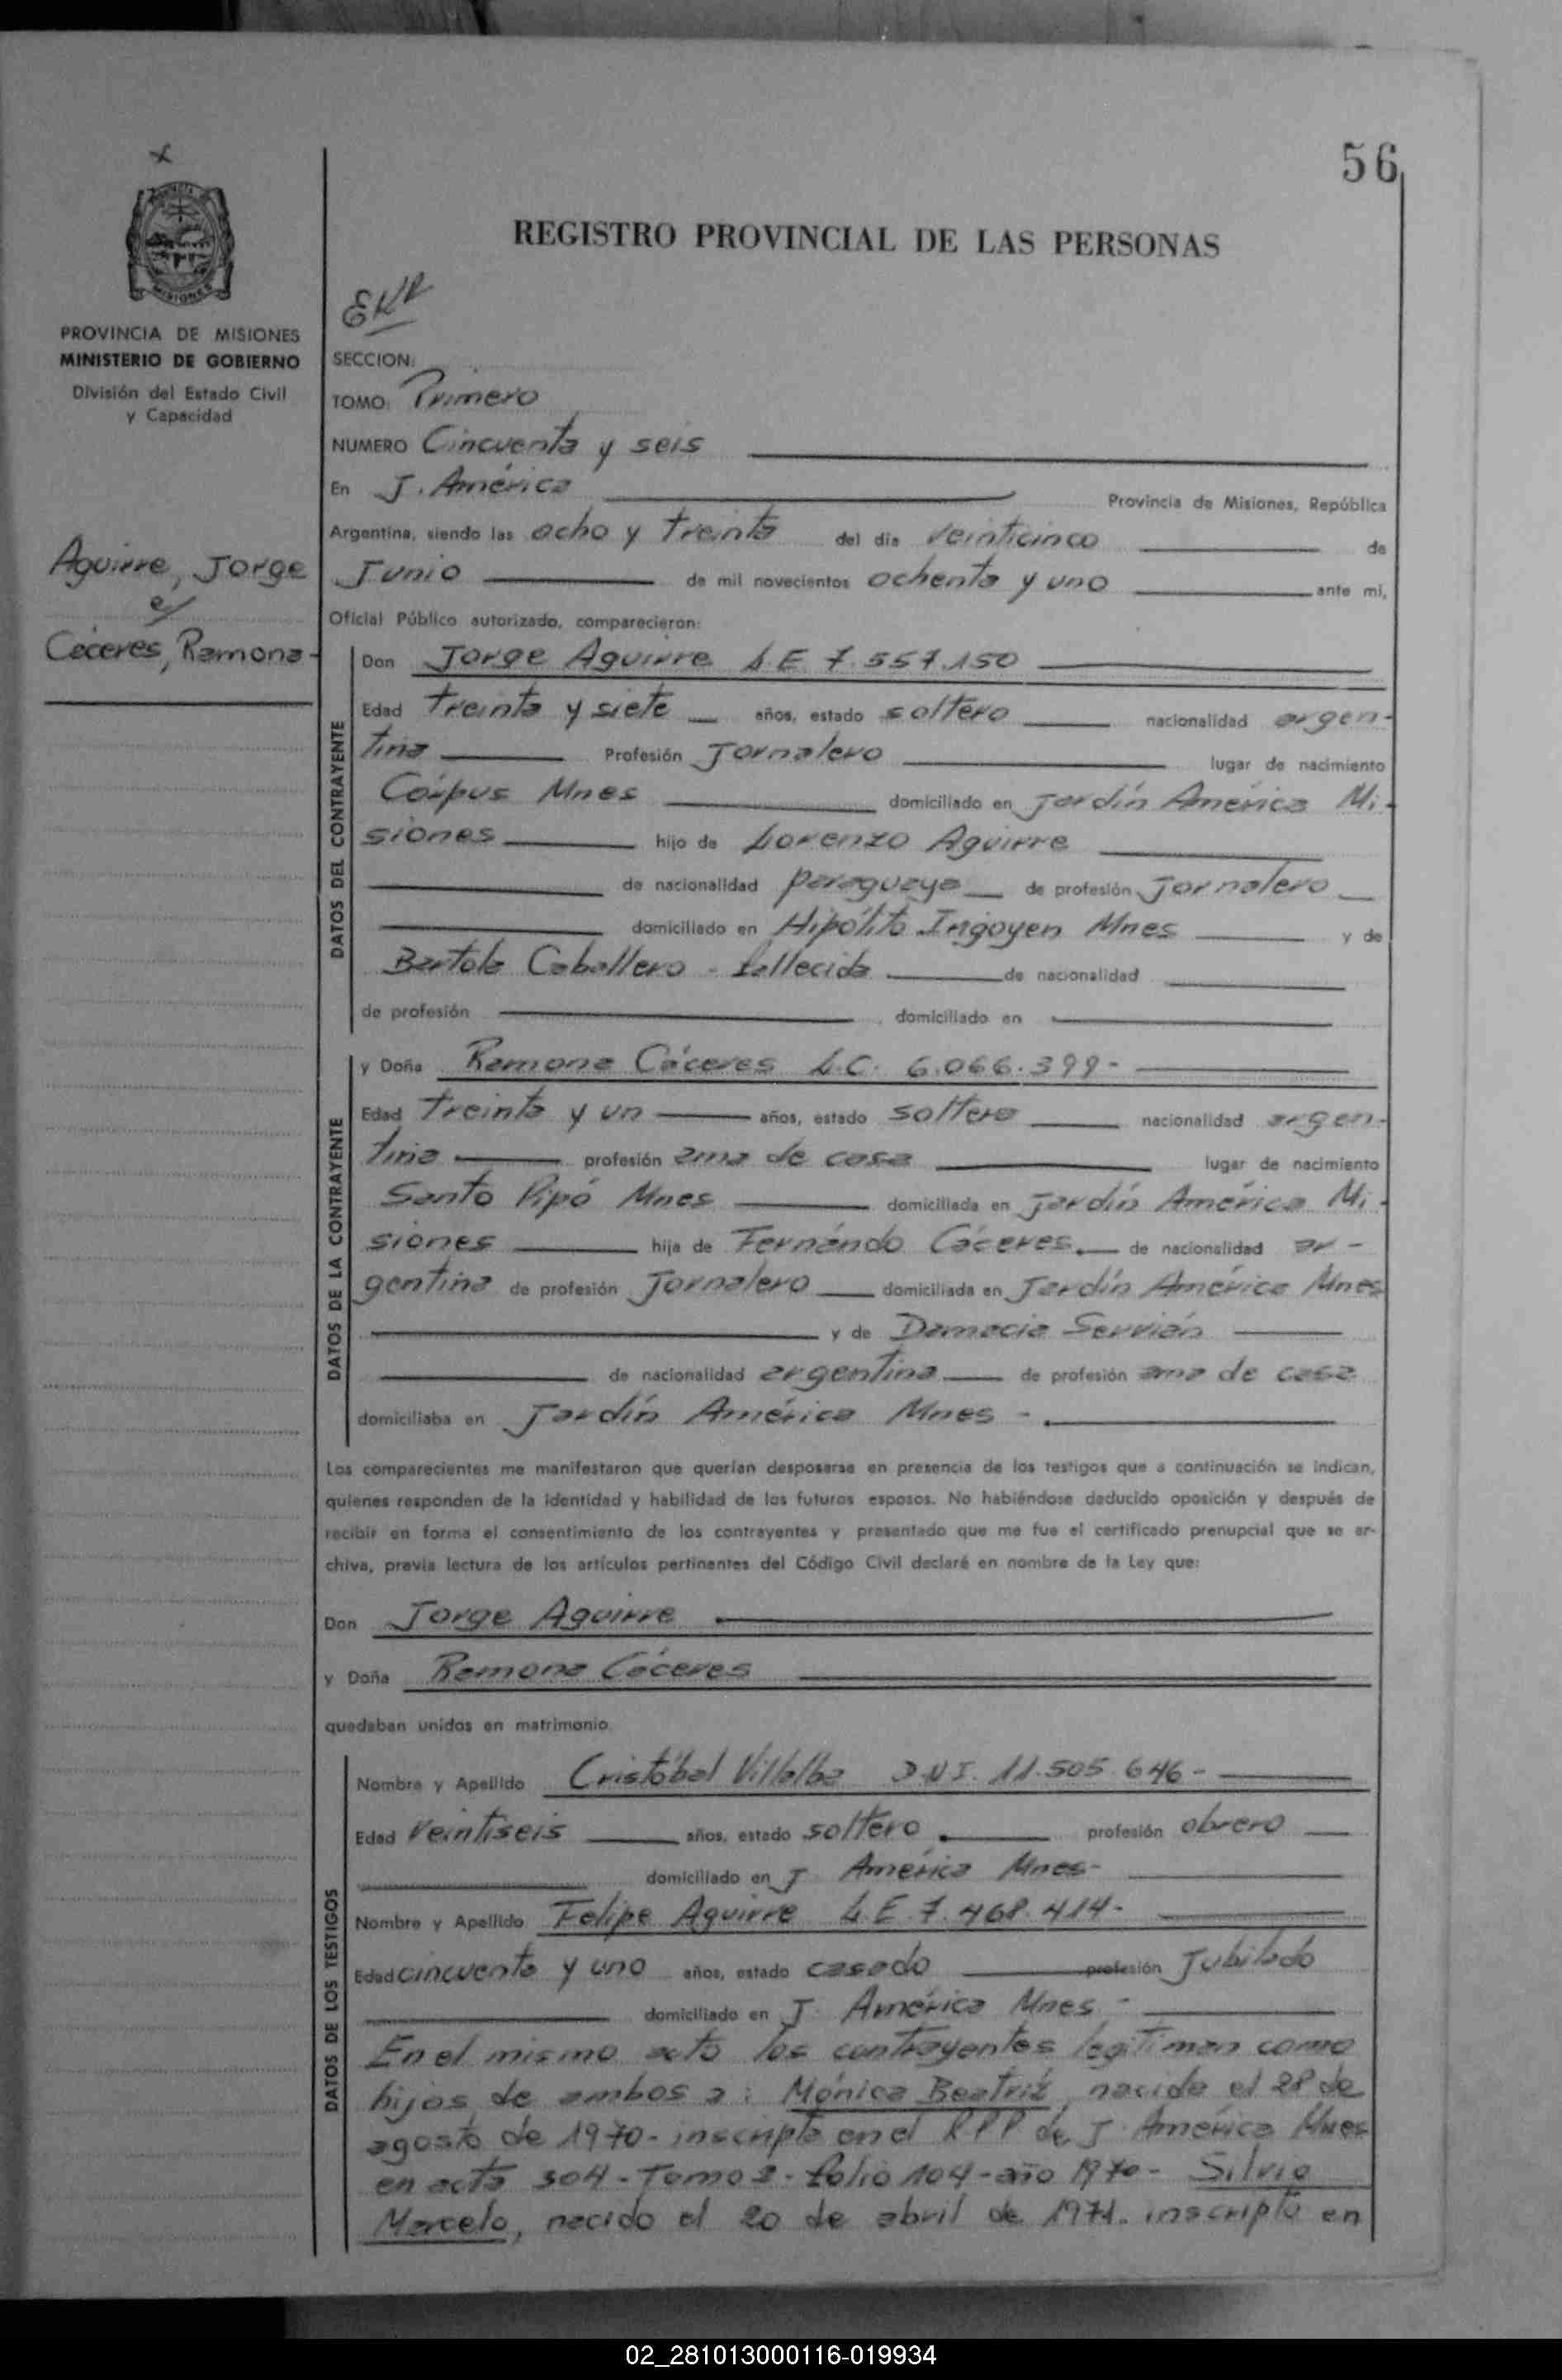 56
REGISTRO PROVINCIAL DE LAS PERSONAS
MISIONES
PROVINCIA DE MISIONES
MINISTERIO DE GOBIERNO
División del Estado Civil
y Capacidad
Aguirre, Jorge
c/
Cáceres, Ramona
SECCION:
TOMO: Primero
NUMERO Cincuenta y seis
En J. América Provincia de Misiones, República
Argentina, siendo las ocho y treinta del día veinticinco de
Junio de mil novecientos ochenta y uno ante mí,
Oficial Público autorizado, comparecieron:
DATOS DEL CONTRAYENTE
Don Jorge Aguirre L.E 7.557.150
Edad treinta y siete años, estado soltero nacionalidad argen-
tina Profesión Jornalero lugar de nacimiento
Corpus Mnes domiciliado en Jardín América Mi-
siones hijo de Lorenzo Aguirre
de nacionalidad paraguaya de profesión Jornalero
domiciliado en Hipólito Irigoyen Mnes y de
Bartola Caballero - fallecida de nacionalidad
de profesión domiciliado en
DATOS DE LA CONTRAYENTE
y Doña Ramona Cáceres L.C. 6.066.399-
Edad treinta y un años, estado soltera nacionalidad argen-
tina profesión ama de casa lugar de nacimiento
Santo Pipó Mnes domiciliada en Jardín América Mi-
siones hija de Fernando Cáceres de nacionalidad ar-
gentina de profesión Jornalero domiciliada en Jardín América Mnes
y de Damacia Servián
de nacionalidad argentina de profesión ama de casa
domiciliaba en Jardín América Mnes -
Los comparecientes me manifestaron que querían desposarse en presencia de los testigos que a continuación se indican,
quienes responden de la identidad y habilidad de los futuros esposos. No habiéndose deducido oposición y después de
recibir en forma el consentimiento de los contrayentes y presentado que me fue el certificado prenupcial que se ar-
chiva, previa lectura de los artículos pertinentes del Código Civil declaré en nombre de la Ley que:
Don Jorge Aguirre
y Doña Ramona Cáceres
quedaban unidos en matrimonio
DATOS DE LOS TESTIGOS
Nombre y Apellido Cristóbal Villalba D.N.I. 11.505.646-
Edad Veintiseis años, estado soltero profesión obrero
domiciliado en J América Mnes-
Nombre y Apellido Felipe Aguirre L.E 7.468.414-
Edad cincuenta y uno años, estado casado profesión Jubilado
domiciliado en J. América Mnes -
En el mismo acto los contrayentes legitiman como
hijos de ambos a: Mónica Beatriz, nacida el 28 de
agosto de 1970- inscripta en el RPP de J. América Mnes
en acta 304 - Tomo 2 - folio 104 - año 1970 - Silvio
Marcelo, nacido el 20 de abril de 1971. inscripto en
02_281013000116-019934